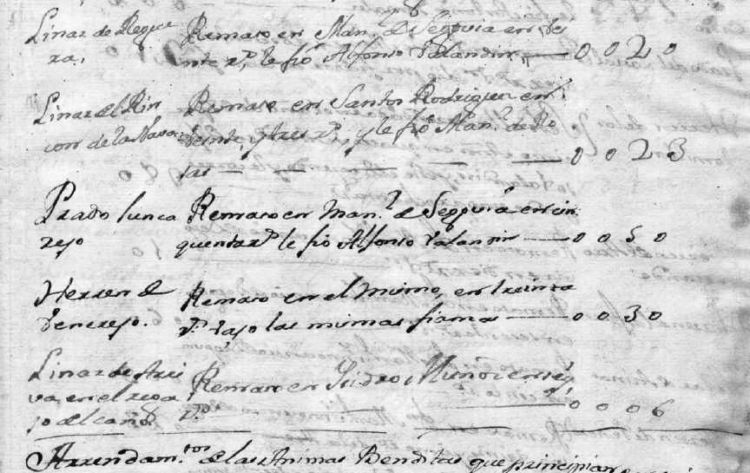 Linar de Regue Remato en Man.l de Segovia en ve
ra, inte r.s le fió Alfonso Valandin — 0 0 2 0
Linar del Rin Remato en Santos Rodriguez en
con de la Nava veinte y tres r.s, y le fió Man.l de Ro
jas — 0 0 2 3
Prado Junca Remato en Man.l de Segovia en cin
rejo quenta r.s le fió Alfonso Valandin — 0 0 5 0
Herren de Remato en el mismo, en treinta
r.s bajo las mismas firmas — 0 0 3 0
Linar de Arri Remato en Isidro Muñoz en seis
va, en el r.s 0 0 0 6
jo del caño
Arrendam.tos de las Animas Benditas que principian